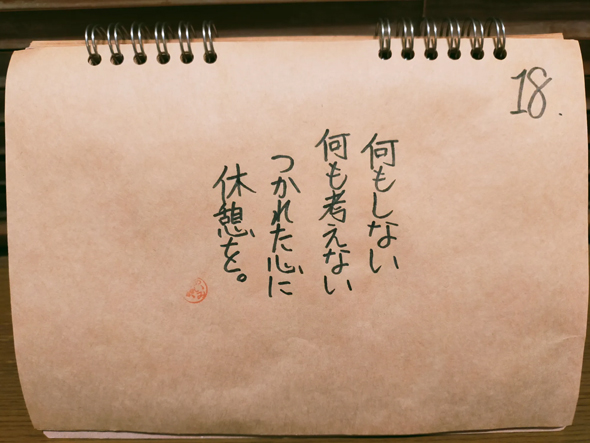 18.
何もしない
何も考えない
つかれた心に
休憩を。